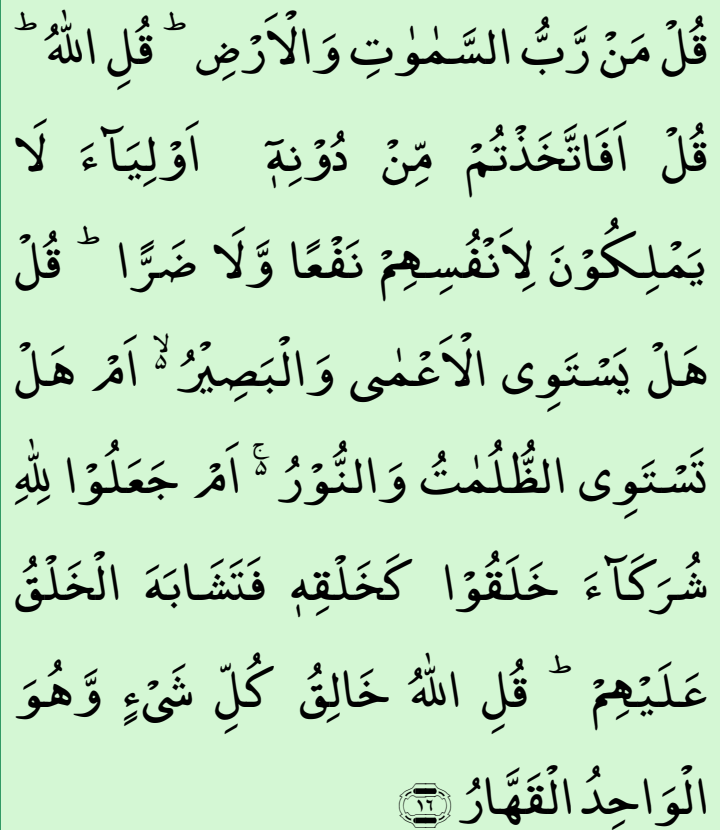 قُلۡ مَنۡ رَّبُّ السَّمٰوٰتِ وَالۡاَرۡضِ ؕ قُلِ اللّٰهُ‌ ؕ
قُلۡ اَفَاتَّخَذۡتُمۡ مِّنۡ دُوۡنِهٖۤ اَوۡلِيَآءَ لَا
يَمۡلِكُوۡنَ لِاَنۡفُسِهِمۡ نَفۡعًا وَّلَا ضَرًّا‌ ؕ قُلۡ
هَلۡ يَسۡتَوِى الۡاَعۡمٰى وَالۡبَصِيۡرُ ۙ اَمۡ هَلۡ
تَسۡتَوِى الظُّلُمٰتُ وَالنُّوۡرُ ۚ اَمۡ جَعَلُوۡا لِلّٰهِ
شُرَكَآءَ خَلَقُوۡا كَخَلۡقِهٖ فَتَشَابَهَ الۡخَـلۡقُ
عَلَيۡهِمۡ‌ ؕ قُلِ اللّٰهُ خَالِقُ كُلِّ شَىۡءٍ وَّهُوَ
الۡوَاحِدُ الۡقَهَّارُ ﴿۱۶﴾